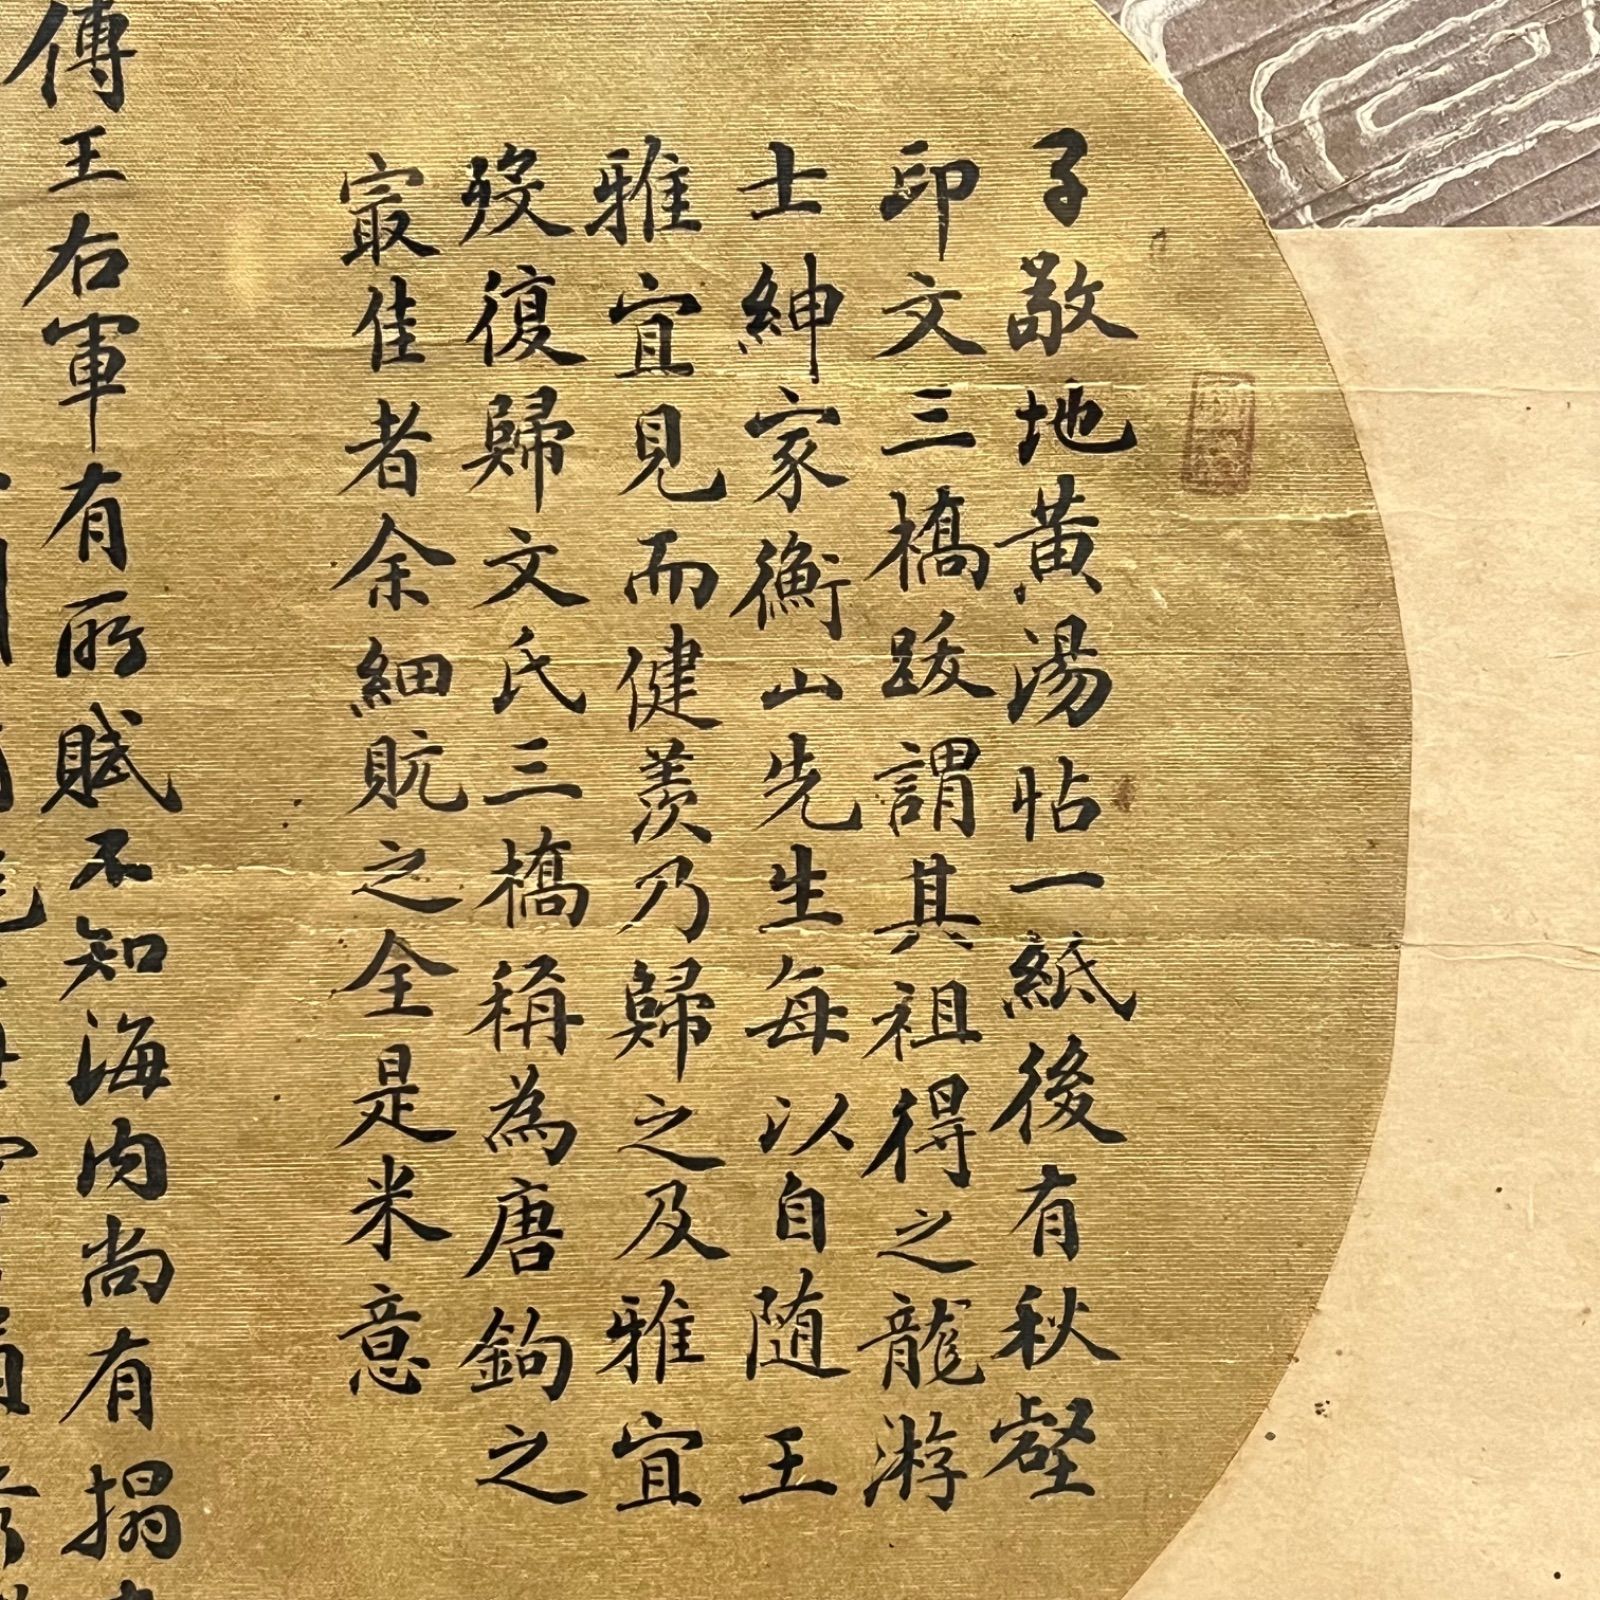 子敬地黃湯帖一紙後有秋壑
印文三橋跋謂其祖得之龍游
士紳家衡山先生每以自隨王
雅宜見而健羨乃歸之及雅宜
歿復歸文氏三橋稱為唐鉤之
冣佳者余細貥之全是米意
傅王右軍有所賦不知海內尚有搨